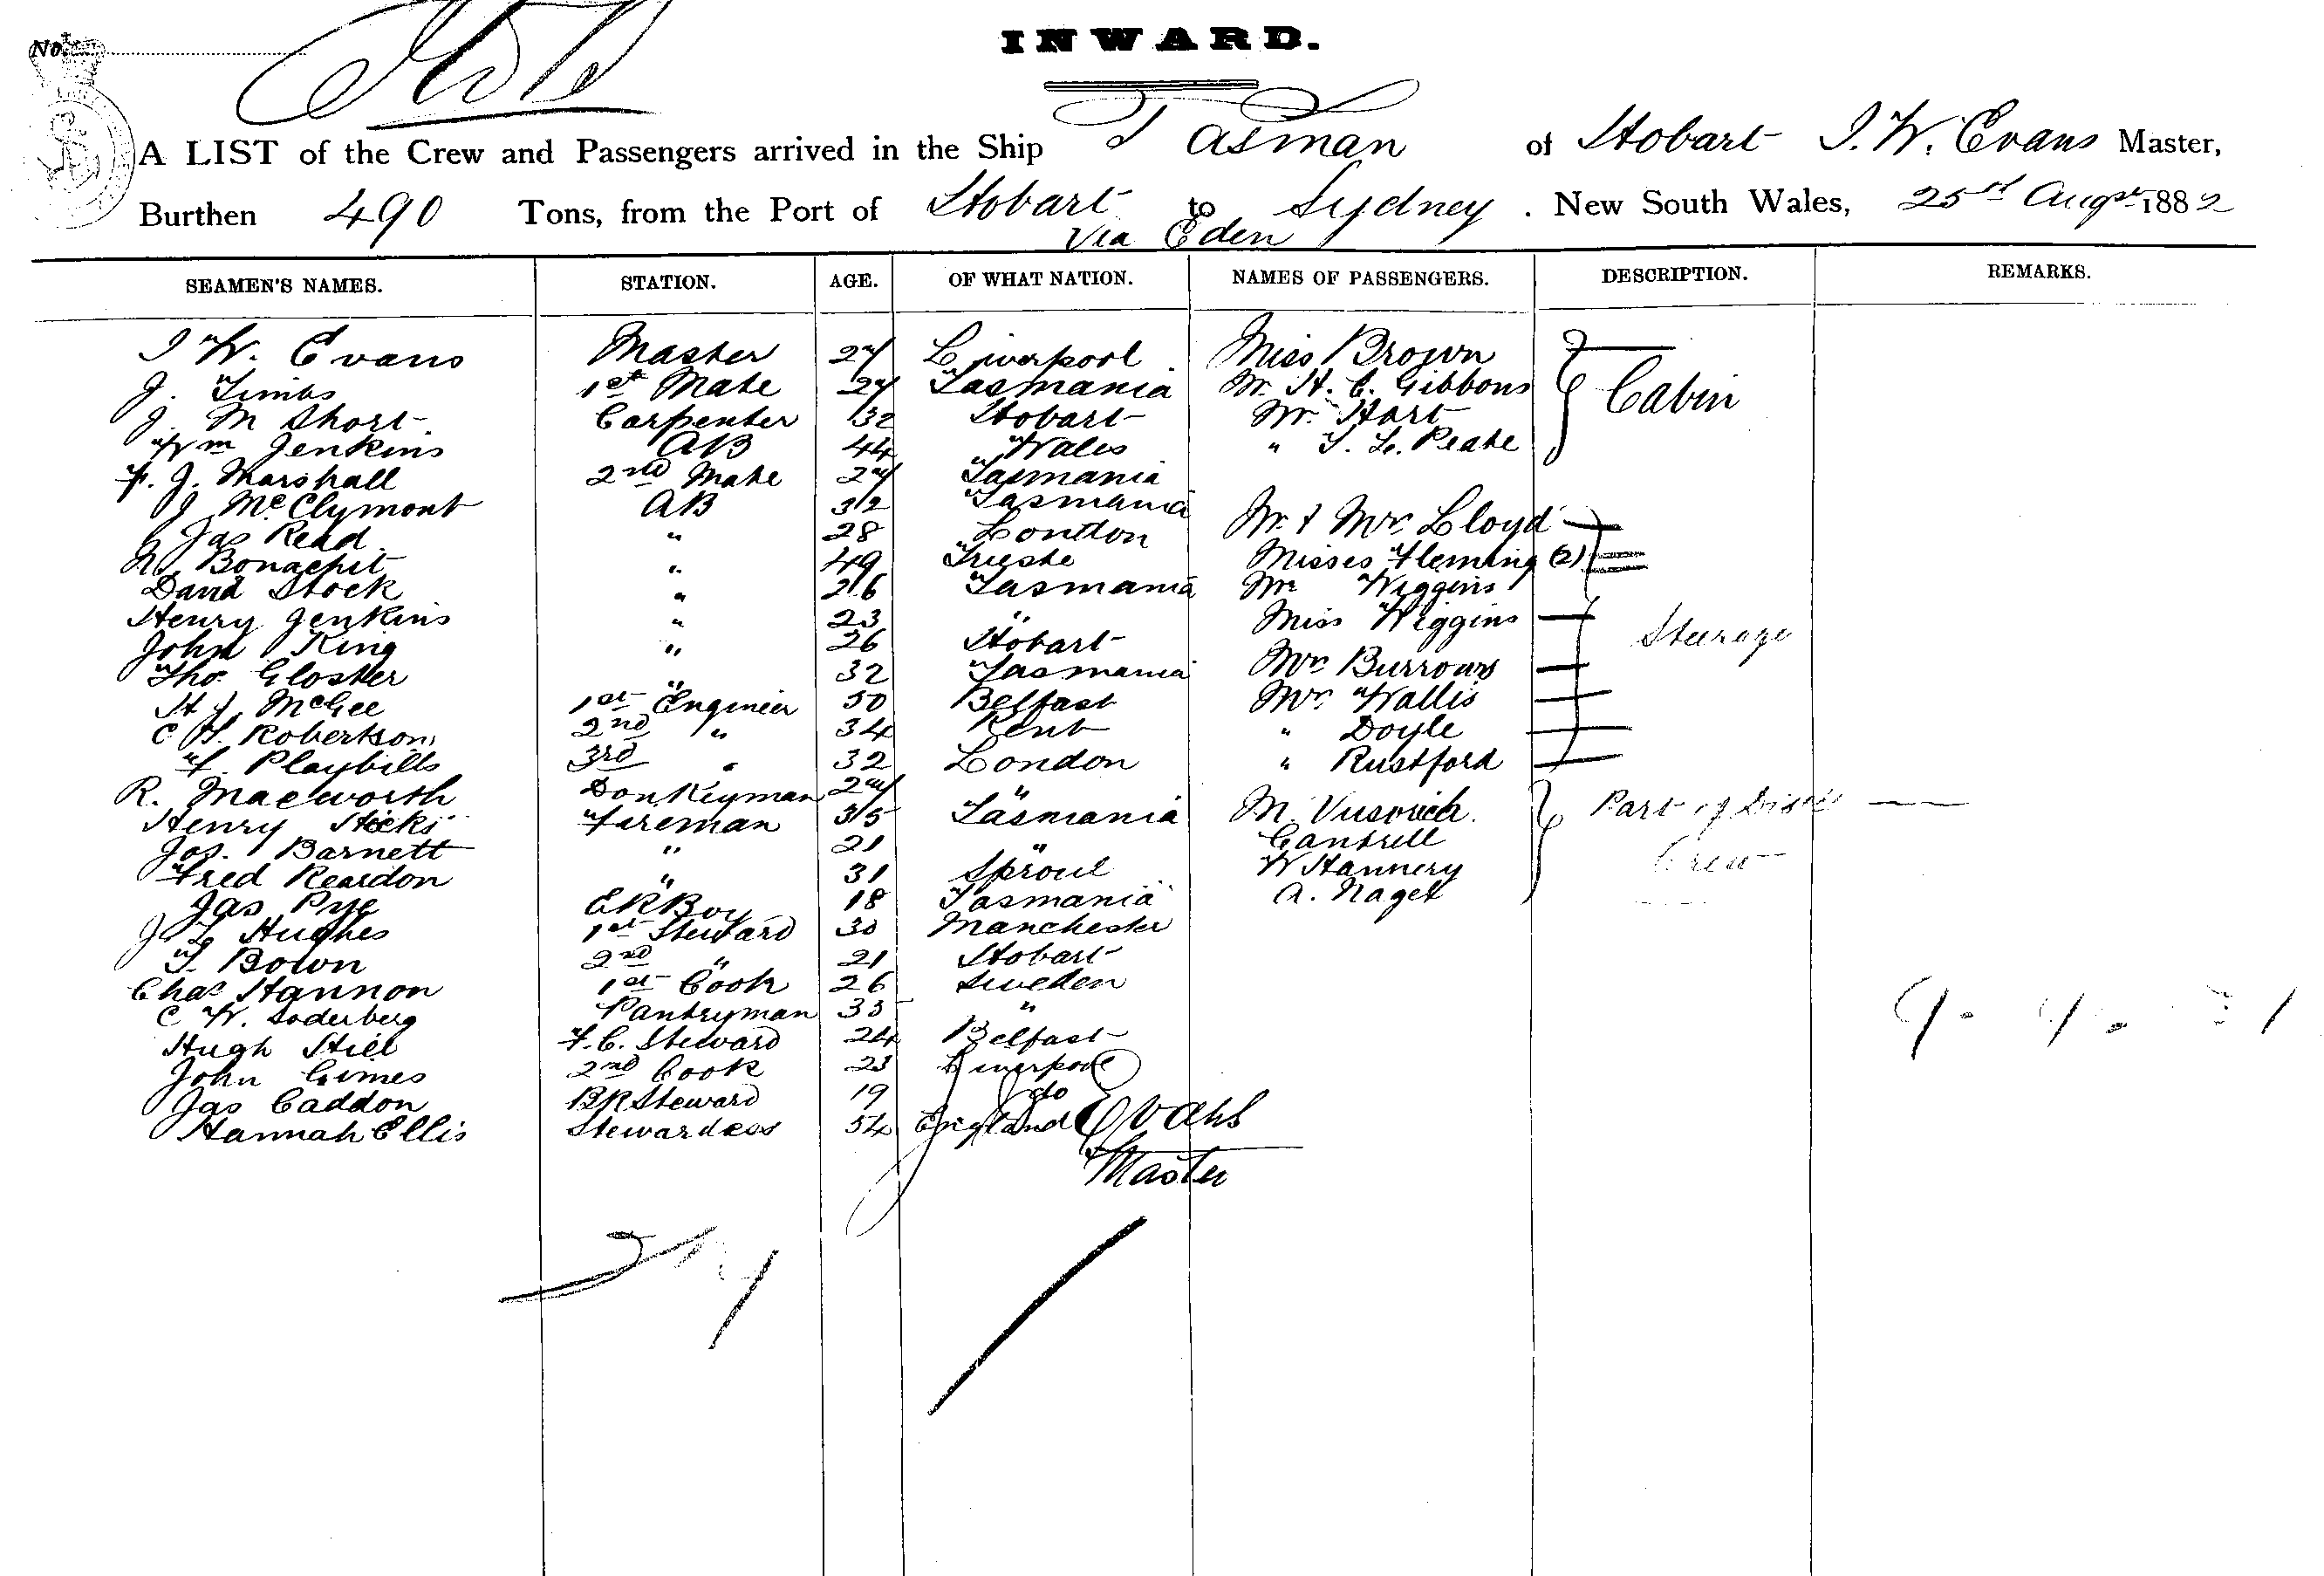 No.
INWARD.
A LIST of the Crew and Passengers arrived in the Ship Tasman of Hobart J. W. Evans Master,
Burthen 490 Tons, from the Port of Hobart to Sydney. New South Wales, 25th Augst 1882
Via Eden
SEAMEN'S NAMES. STATION. AGE. OF WHAT NATION. NAMES OF PASSENGERS. DESCRIPTION. REMARKS.
J W. Evans Master 27 Liverpool Miss Brown
J. Timbs 1st Mate 27 Tasmania Mr. H. C. Gibbons Cabin
J. M Short Carpenter 32 Hobart Mr. Hart
Wm Jenkins AB 44 Wales " T. L. Peate
F. J. Marshall 2nd Mate 27 Tasmania
J McClymont AB 32 Tasmania Mr. & Mrs. Lloyd
Jas Read " 28 London
Bonachit " 49 Trieste Misses Fleming (2)
David Stock " 26 Tasmania Mr Wiggins
Henry Jenkins " 23 " Miss Wiggins
John King " 26 Hobart Steerage
Tho. Gloster " 32 Tasmania Mr Burrows
H J. McGee 1st Engineer 50 Belfast Mr. Wallis
C H. Robertson 2nd " 34 Kent " Doyle
F. Playbills 3rd " 32 London " Rustford
R. Macworth Donkeyman 27 "
Henry Hicks Fireman 35 Tasmania M. Vusovich. Part of
Jos. Barnett " 21 " Cantrell
Fred Reardon " 31 Sproul W Hannery Crew
Jas Pye ER Boy 18 Tasmania A. Nagel
J L Hughes 1st Steward 30 Manchester
T. Bown 2nd " 21 Hobart
Chas Hannon 1st Cook 26 Sweden
C W. Soderberg Pantryman 33 "
Hugh Hill F.C. Steward 24 Belfast
John Grimes 2nd Cook 23 Liverpool
Jas Caddon BR Steward 19 do
Hannah Ellis Stewardess 54 England
Evans
Master